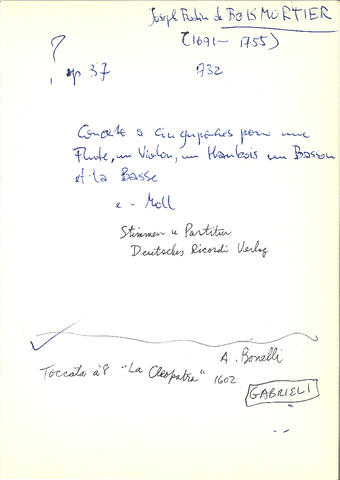 Joseph Bodin de BOISMORTIER
(1691 - 1755)
? op 37 1732
Concerto a cinq parties pour une
Flute, un Violon, un Hautbois un Basson
et la Basse
e - Moll
Stimmen u Partitur
Deutsches Ricordi Verlag
A. Bonelli
Toccata à 8 "La Cleopatra" 1602
GABRIELI